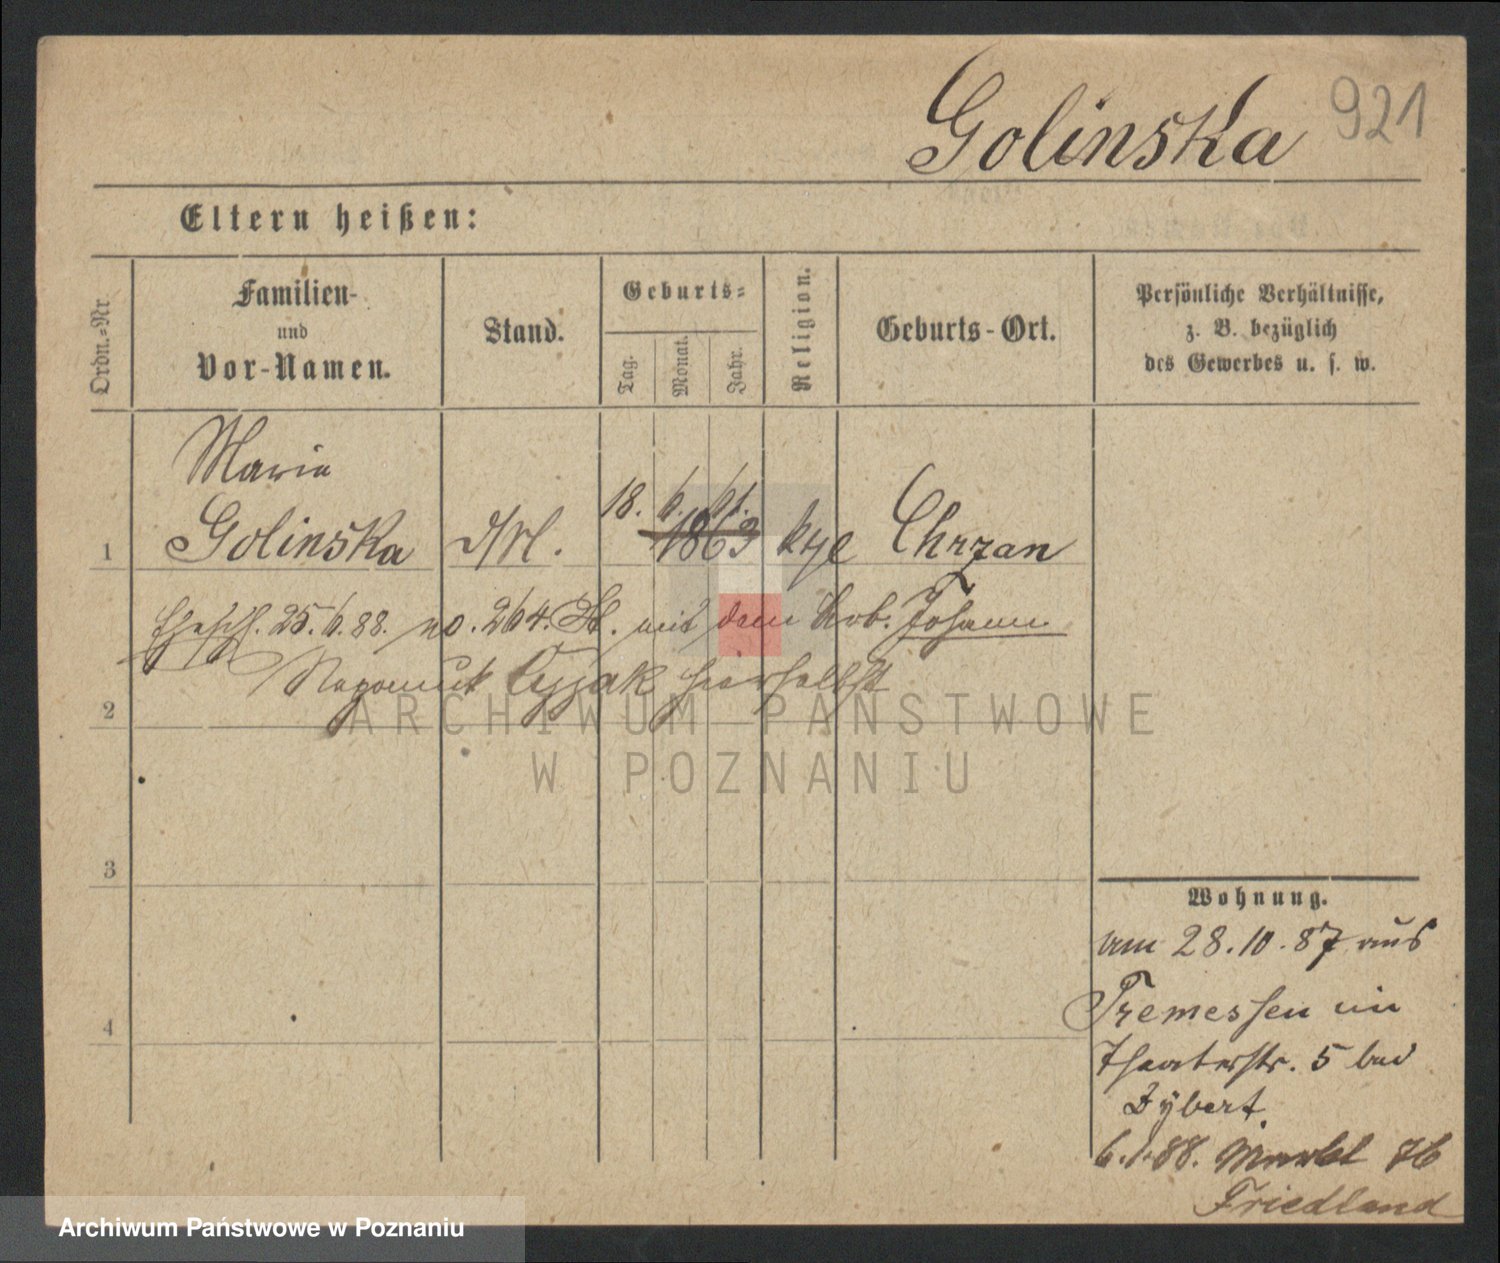 Golinska 921
Eltern heißen:
Ordn.-Nr
Familien-
und
Vor-Namen.
Stand.
Geburts-
Tag.
Monat.
Jahr.
Religion.
Geburts-Ort.
Persönliche Verhältnisse,
z. B. bezüglich
des Gewerbes u. s. w.
Maria
18. 6. 61.
1 Golinska 1863 Chrzan
Eheschl. 25.6.88. no. 264. St. mit dem Arb. Johann
Nepomuk hierselbst
2
ARCHIWUM PAŃSTWOWE
W POZNANIU
3
Wohnung.
am 28.10.87 aus
Tremessen in
4
Theaterstr. 5 bei
Zybert.
6.1.88. Markt 76
Friedland
Archiwum Państwowe w Poznaniu